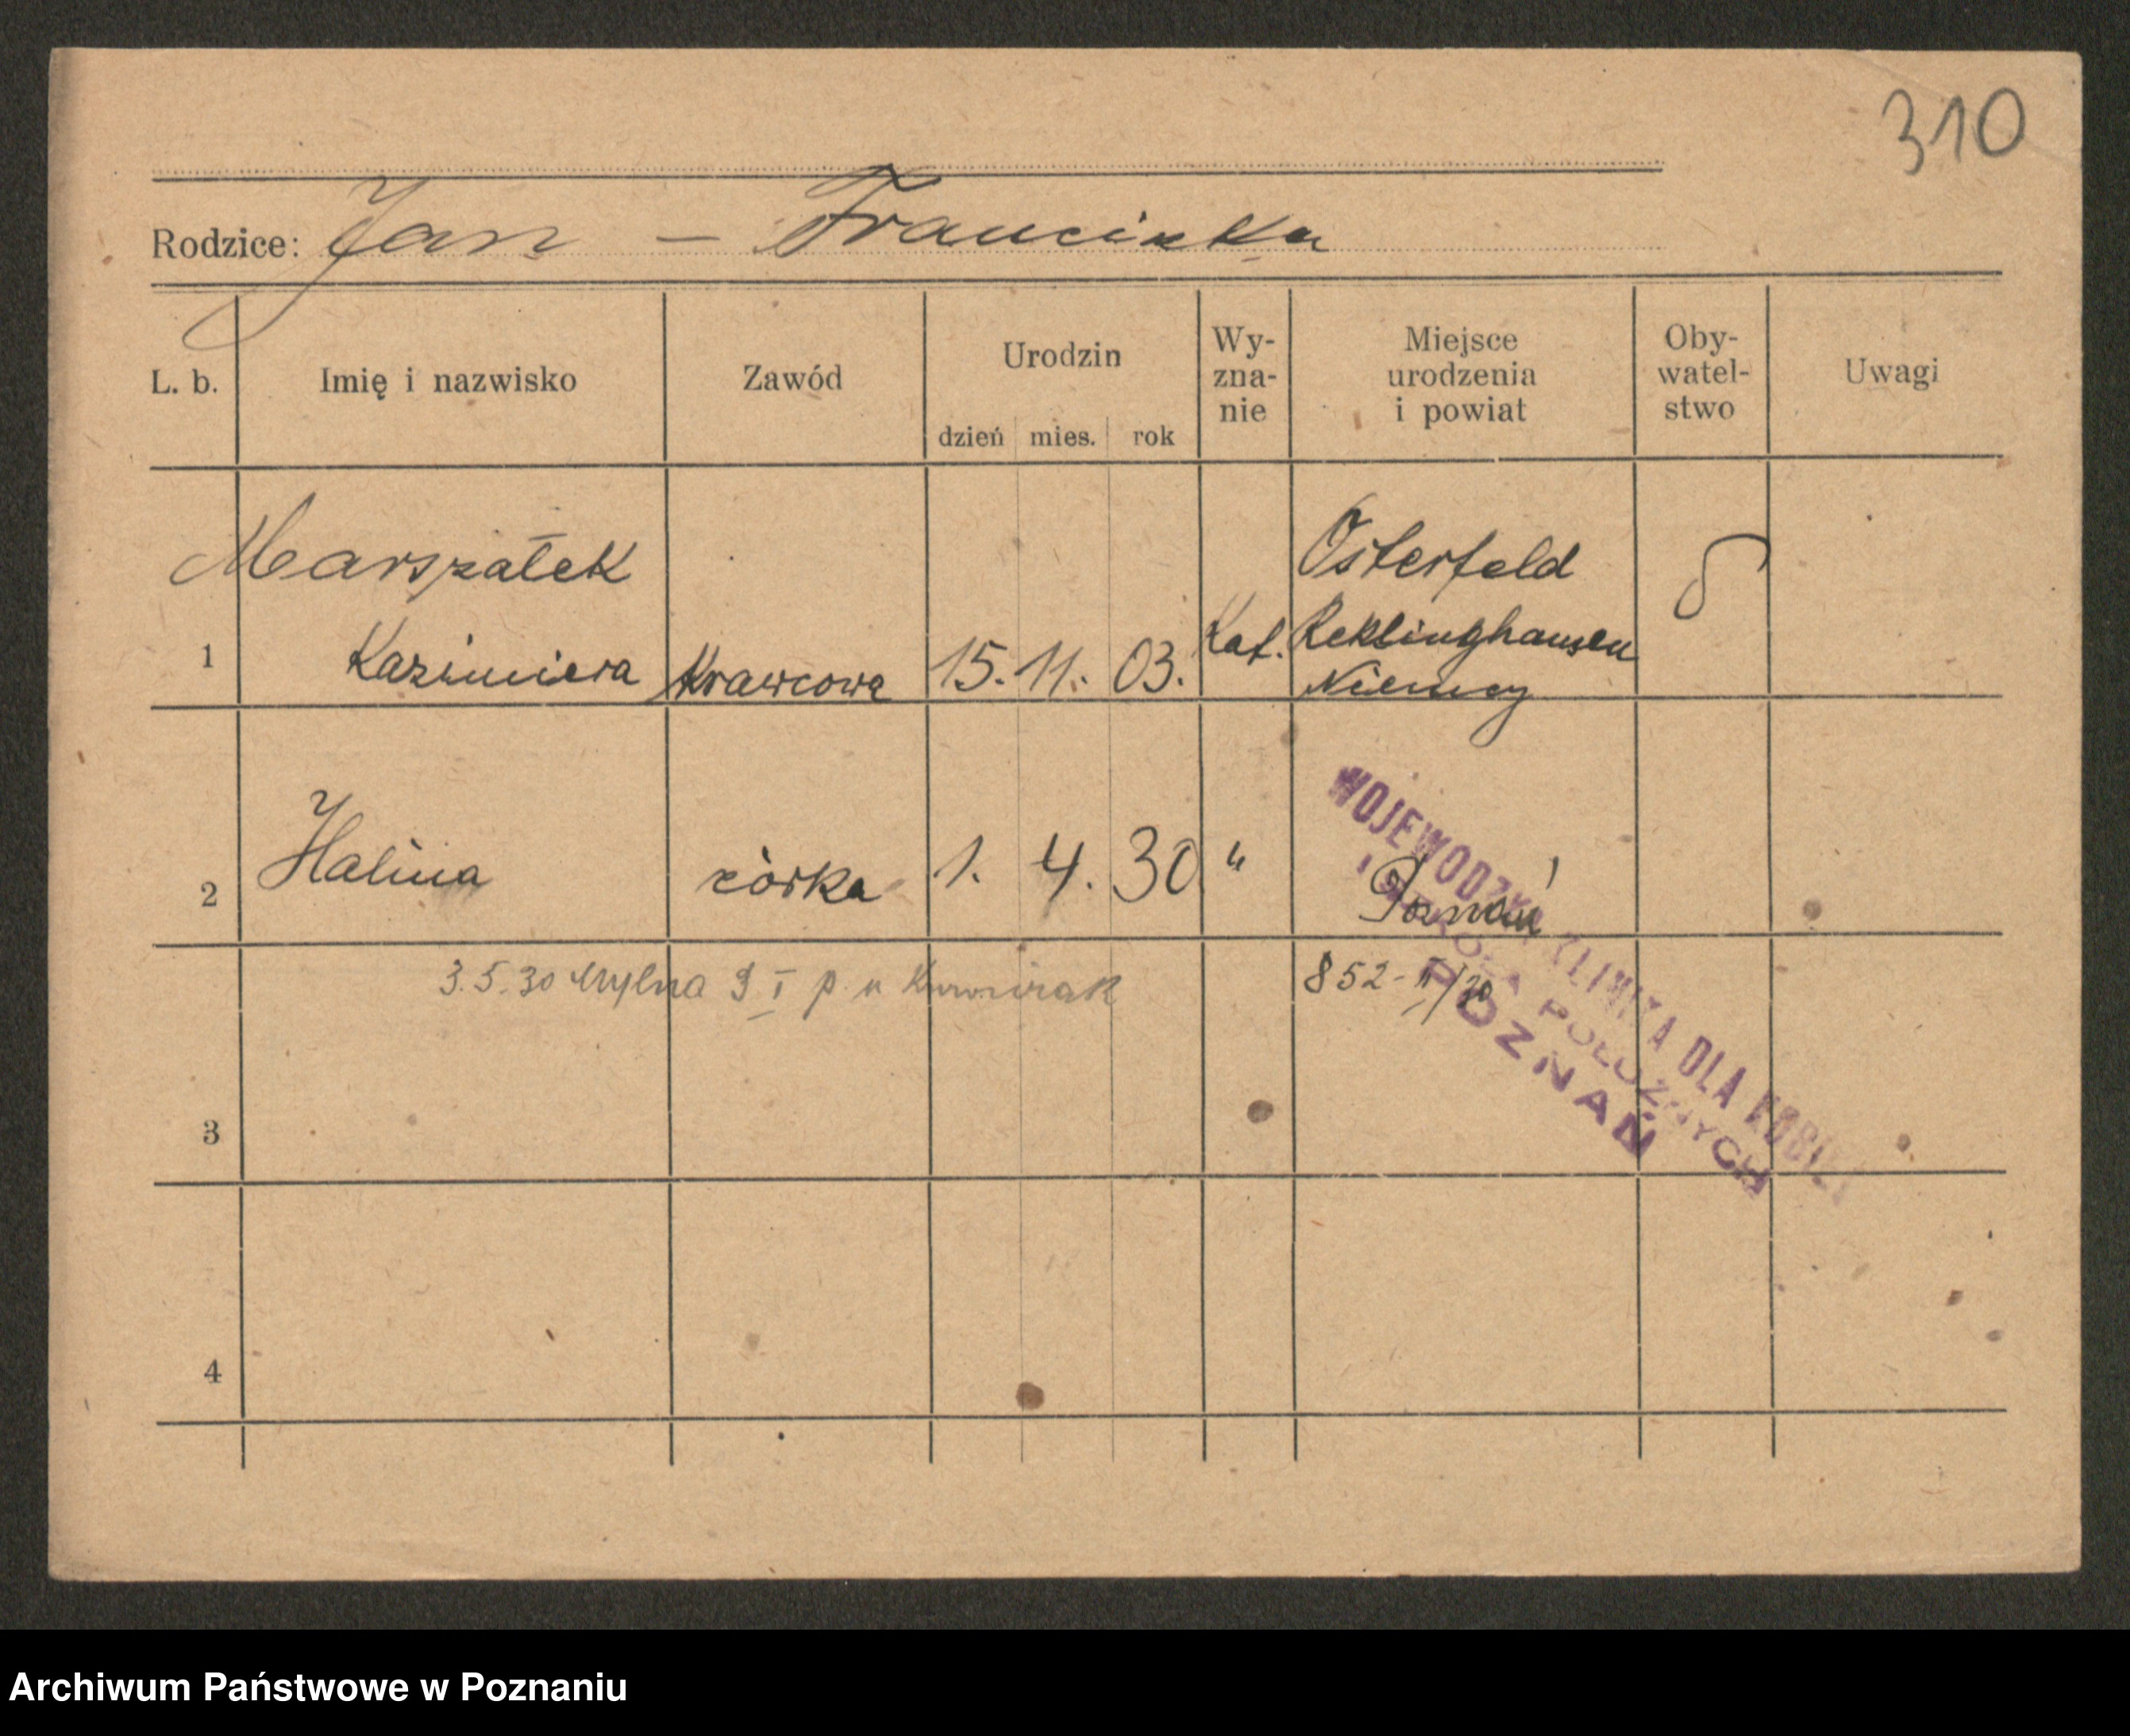 310
Rodzice: Jan – Franciszka
L. b. Imię i nazwisko Zawód Urodzin dzień mies. rok Wy-zna-nie Miejsce urodzenia i powiat Oby-watel-stwo Uwagi
Marszałek Osterfeld
1 Kazimiera Krawcowa 15. 11. 03. Kat. Reklinghausen
Niemcy
2 Halina córka 1. 4. 30 " Poznań
3.5.30 Mylna 9 I p. u 852-II/30
WOJEWÓDZKA KLINIKA DLA KOBIET
I SZKOŁA POŁOŻNYCH
POZNAŃ
3
4
Archiwum Państwowe w Poznaniu